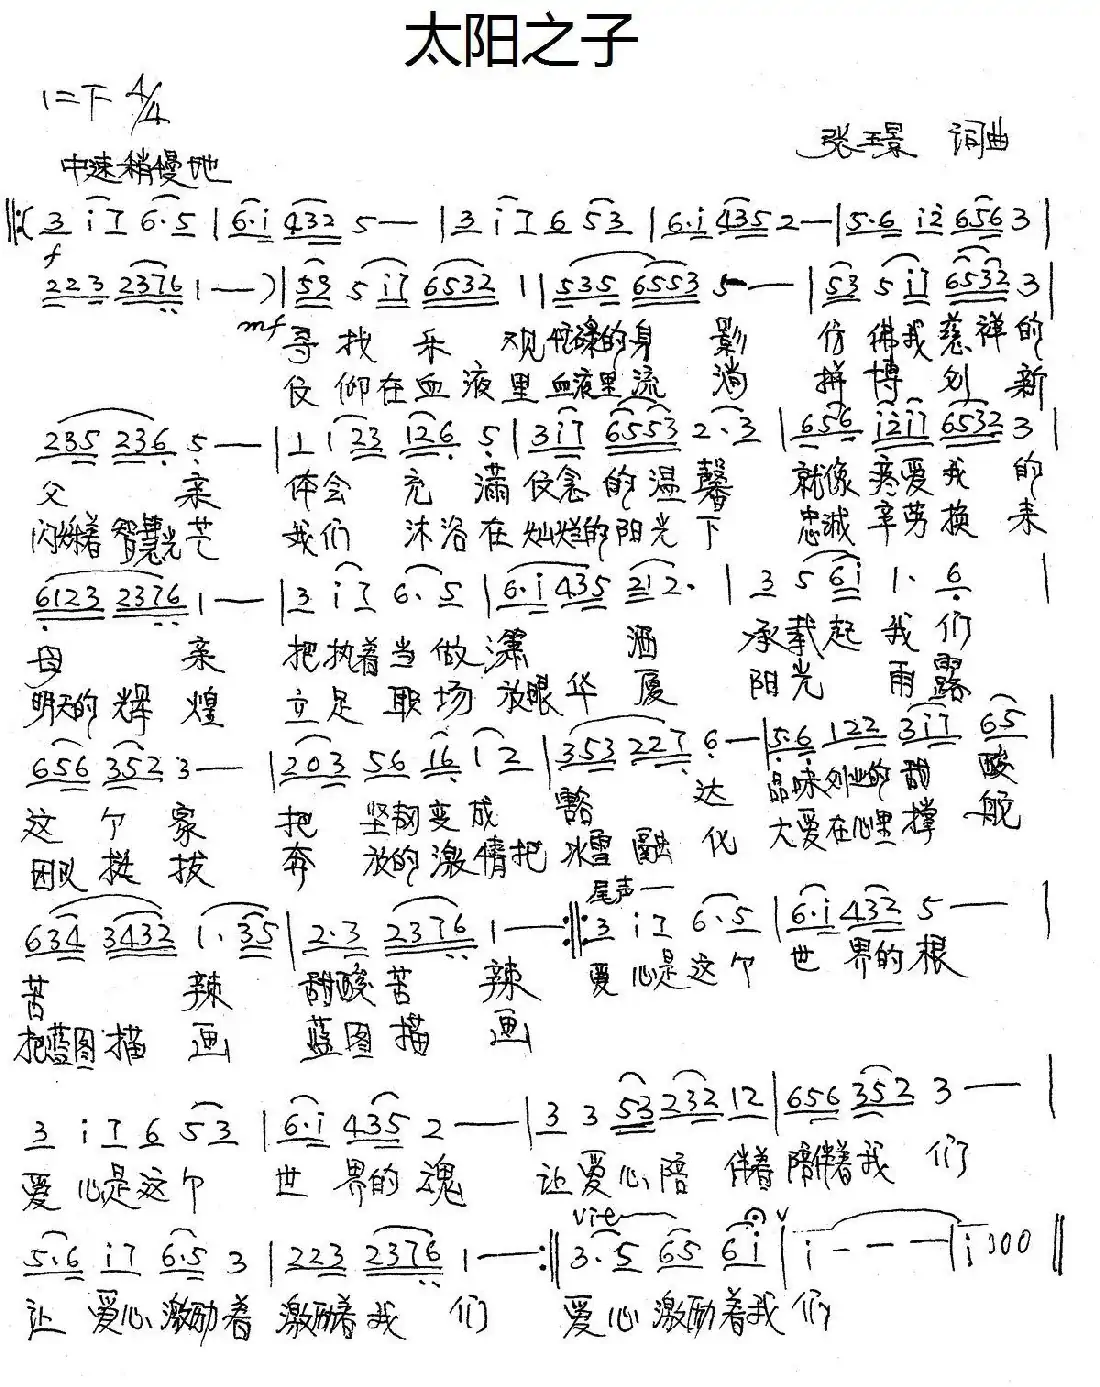 太阳之子
1=F 4/4
张玉景 词曲
中速稍慢地
‖:( 3 i 7 6·5 | 6·i 432 5 — | 3 i 7 6 53 | 6·i 435 2 — | 5·6 i2 656 3 |
f
223 2376 1 — ) | 53 5 i7 6532 1 | 535 6553 5 — | 53 5 i7 6532 3 |
mf 寻找 乐 观忙碌的身 影 仿佛我慈祥的
信仰在血液里血液里流淌 拼博创新
235 236 5 — | 1 1 23 126 5 | 3i7 6553 2·3 | 656 i2i7 6532 3 |
父 亲 体会 充 满信念的温馨 就像疼爱我 的
闪烁着智慧光芒 我们 沐浴在灿烂的阳光下 忠诚辛劳换来
6123 2376 1 — | 3 i 7 6·5 | 6·i 435 212· | 3 5 6i 1· 6 |
母 亲 把执着当做潇 洒 承载起 我们
明天的辉煌 立足 职场放眼华厦 阳光 雨露
656 352 3 — | 203 56 16 12 | 353 227 6 — | 5·6 122 3i7 65 |
这个家 把 坚韧变成 豁 达 品味创业的甜 酸
团队挺拔 奔 放的激情把冰雪融 化 大爱在心里撑 舵
尾声—
634 3432 1·35 | 2·3 2376 1 — :‖: 3 i 7 6·5 | 6·i 432 5 — |
苦 辣 甜酸苦 辣 爱心是这个 世 界的根
把蓝图描 画 蓝图描 画
3 i 7 6 53 | 6·i 435 2 — | 3 3 53 232 12 | 656 352 3 — |
爱心是这个 世 界的魂 让爱心陪 伴着陪伴着我 们
vie—
5·6 i7 6·5 3 | 223 2376 1 — :‖ 3·5 65 6i | i — — — | i 000 ‖
让 爱心激励着 激励着我 们 爱心激励着我们